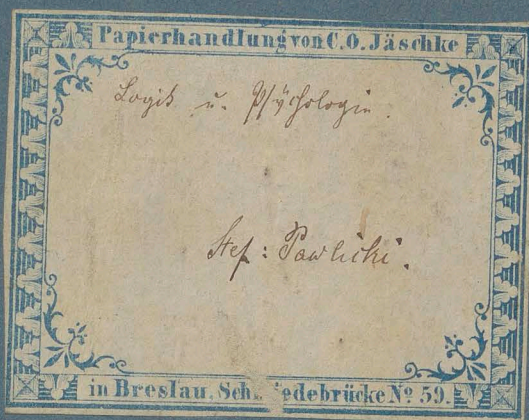 Papierhandlung von C. O. Jäschke
Logik u. Psychologie.
Stef: Pawlicki.
in Breslau, Schmiedebrücke No 59.